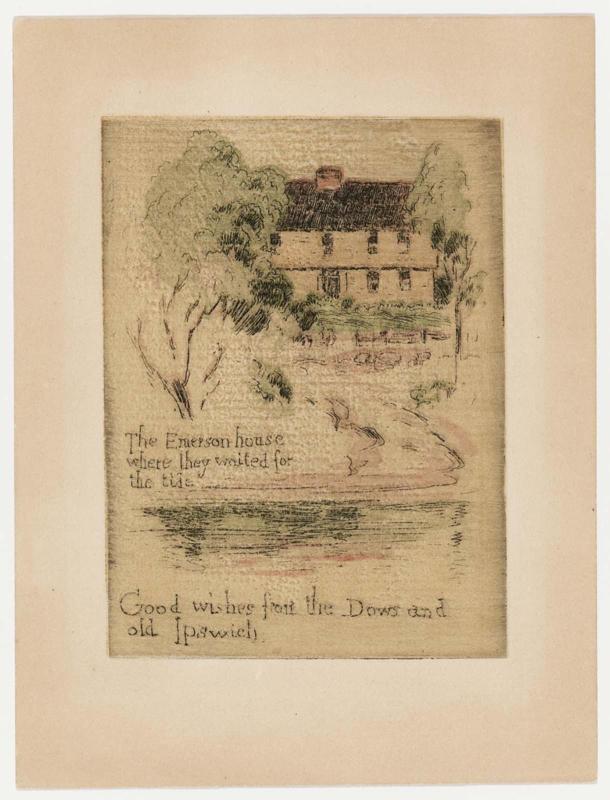 The Emerson house
where they waited for
the tide
Good wishes from the Dows and
old Ipswich.